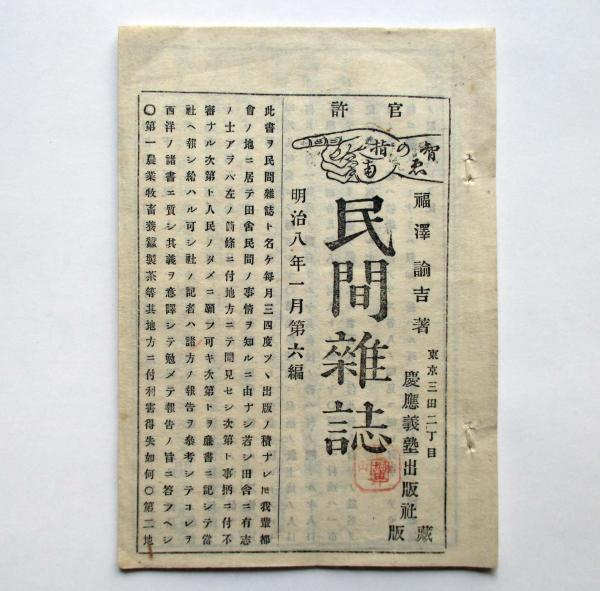 官許
智ゑの指南
福澤諭吉著
東京三田二丁目
慶應義塾出版社藏版
民間雜誌
明治八年一月第六編
此書ヲ民間雜誌ト名ケ毎月三四度ツヽ出版ノ積ナレ𪜈我輩都
會ノ地ニ居テ田舎民間ノ事情ヲ知ルニ由ナシ若シ田舎ニ有志
ノ士アラバ左ノ箇條ニ付地方ニテ聞見セシ次第ト事柄ニ付不
審ナル次第ト人民ノタメニ願フ可キ次第トヲ書ニ記シテ當
社ヘ報シ給ハル可シ社ノ記者ハ諸方ノ報告ヲ參考シテコレヲ
西洋ノ諸書ニ質シ其義ヲ意譯シテ勉メテ報告ノ旨ニ答フヘシ
〇第一農業牧畜養蠶製茶等其地方ニ付利害得失如何〇第二地